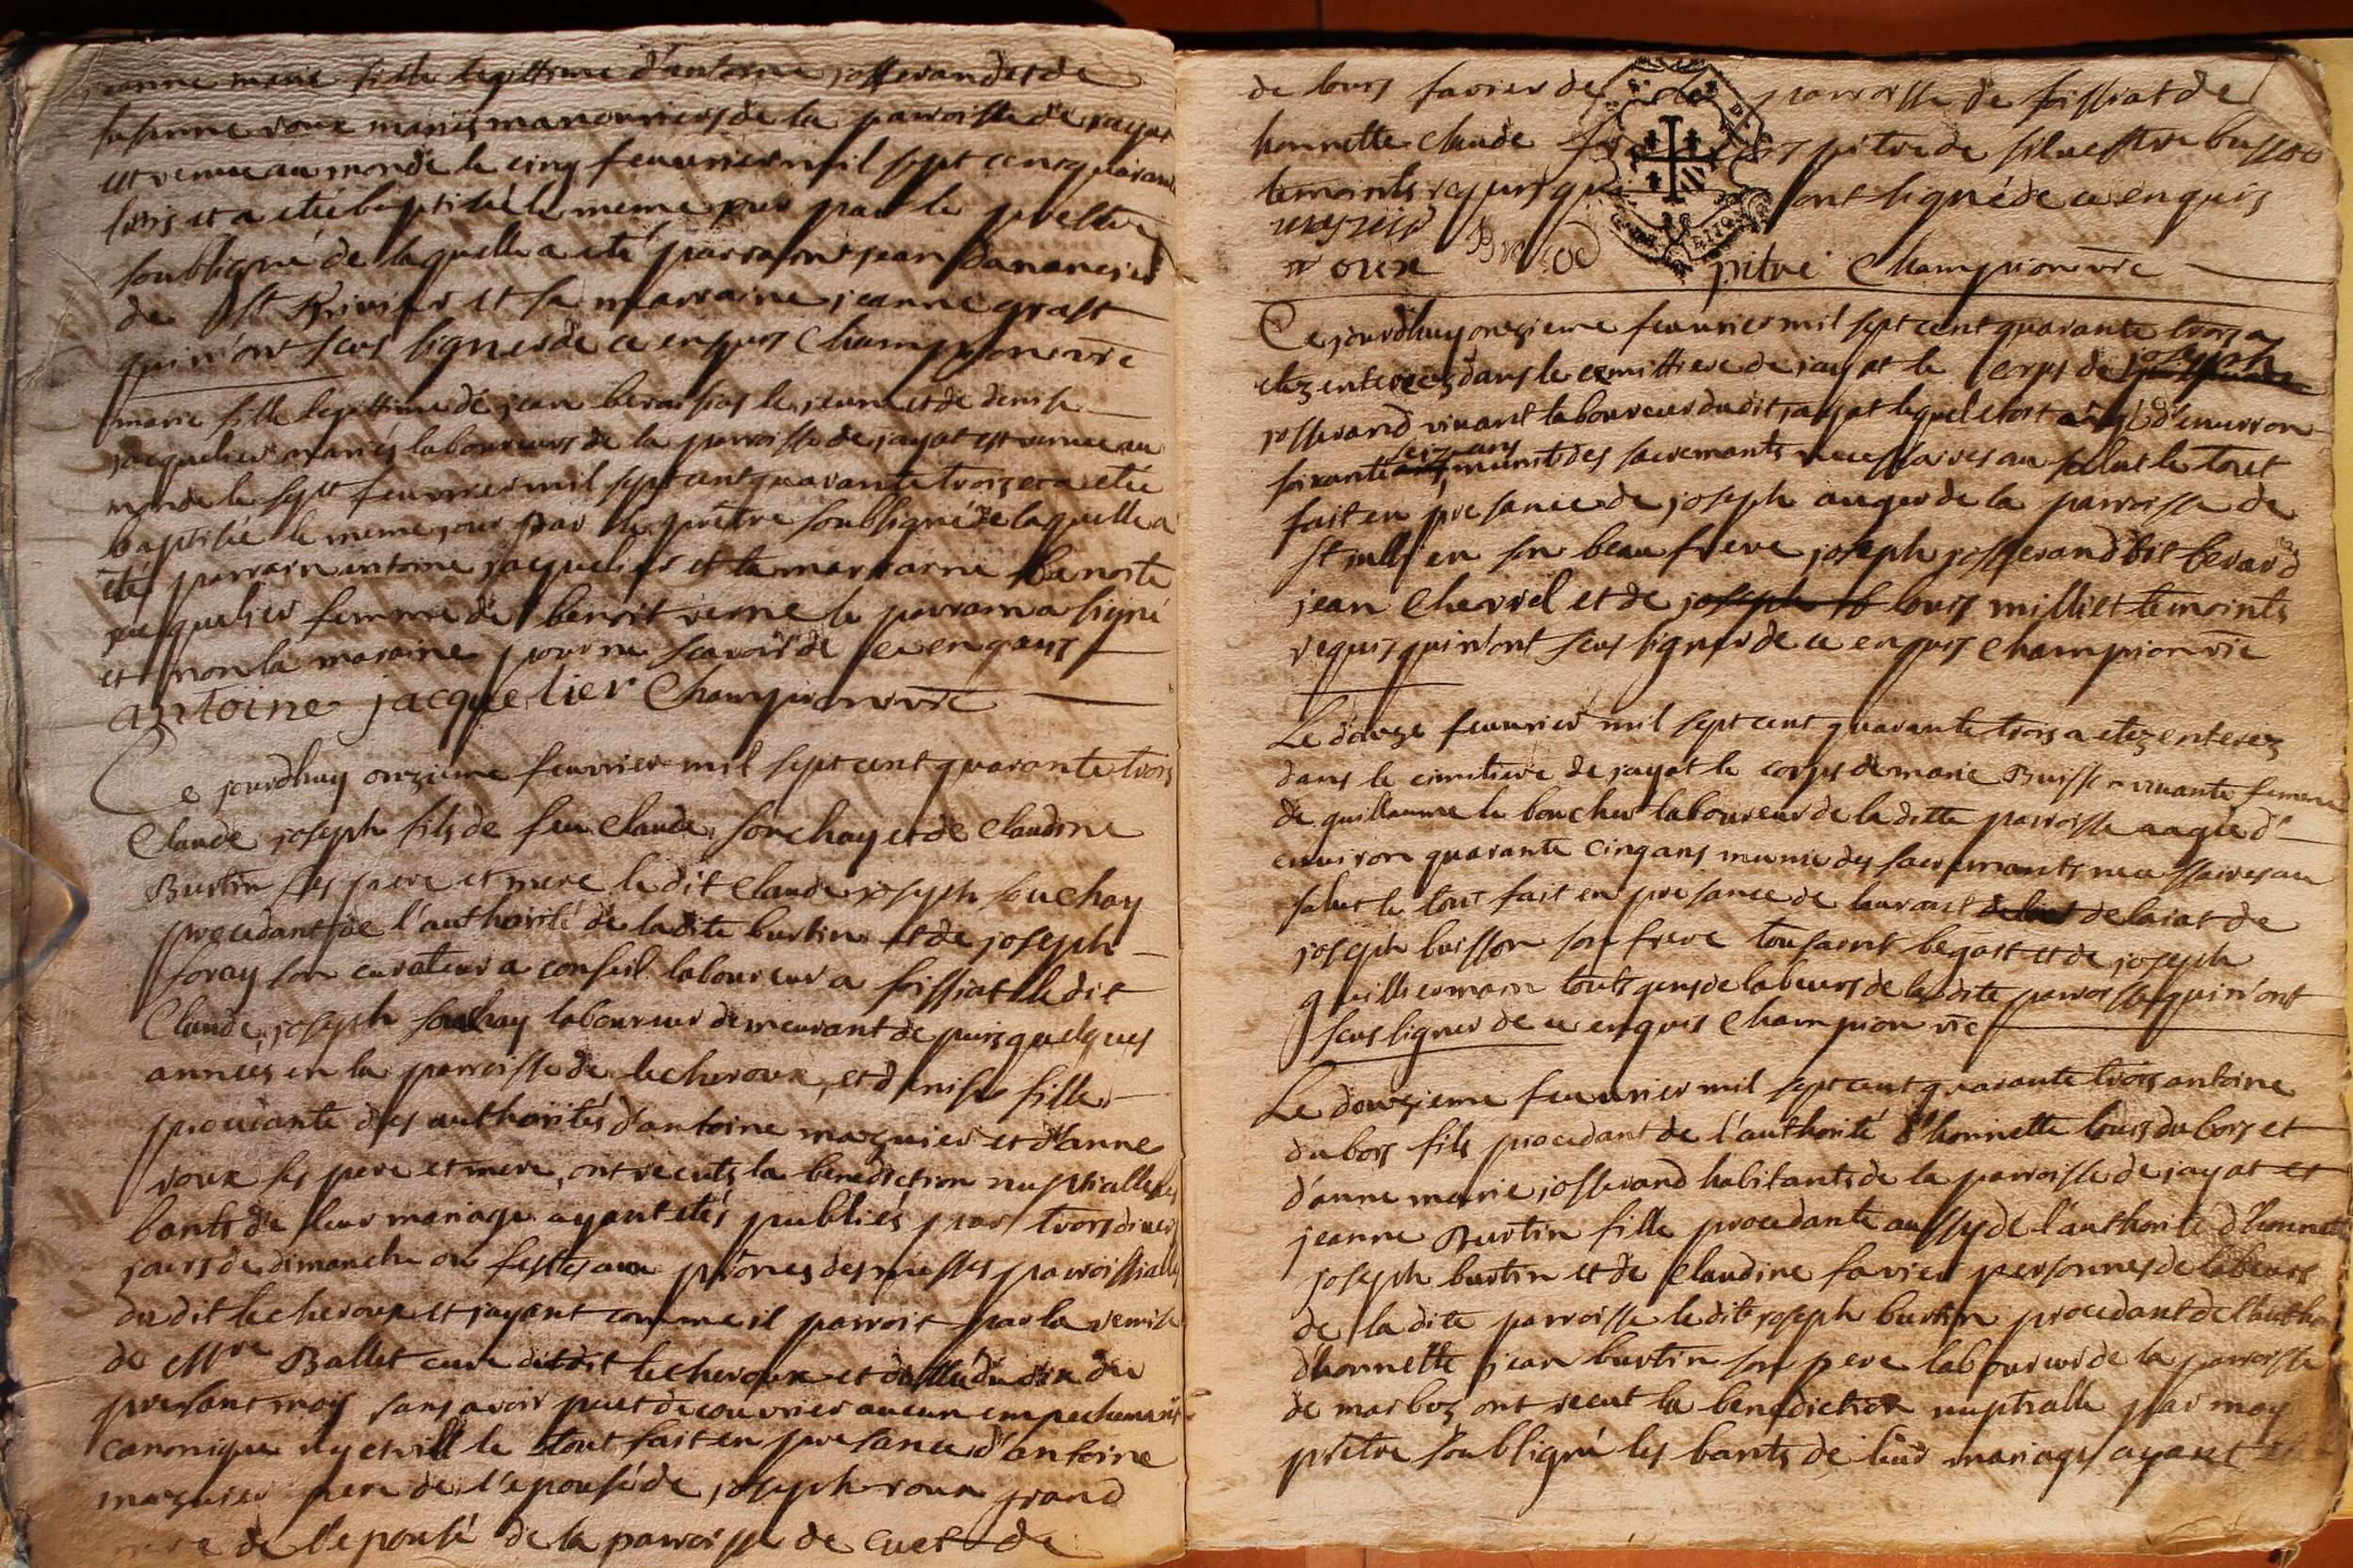 jeanne marie fille legittime d'antoine josserand et de
susanne roux mariés manouvriers de la parroisse de jayat
est venue au monde le cinq feuvrier mil sept cent quarante
trois et a etée baptisée le meme jour par le prestre
soubsigné de laquelle a eté parrain jean
de St Trivier et sa marraine jeanne grast
qui n'ont sceus signer de ce enquis Champion vic
marie fille legittime de jean beraishas le jeune et de denise
jacquelier mariés laboureurs de la parroisse de jayat est venue au
monde le sept feuvrier mil sept cent quarante trois et a etée
baptisée le meme jour par le prêtre soubsigné de laquelle a
été parrain antoine jacquelier et la marraine Benoite
jacquelier femme de benoit verne le parrain a signé
et non la maraine pour ne scavoir de ce enquis
antoine jacquelier Champion vic
Ce jourdhuy onzieme feuvrier mil sept cent quarante trois
Claude joseph fils de feu Claude souchay et de Claudine
Burtin ses pere et mere le dit Claude joseph souchay
procedant de l'authorité de ladite burtin et de joseph
foray son curateur a conseil laboureur a foissiat le dit
Claude joseph souchay laboureur demeurant depuis quelques
années en la parroisse de lecheroux, et denise fille
procedante des authorités d'antoine maguier et d'anne
roux ses pere et mere, ont recuts la benediction nuptialle les
bants de leur mariage ayant etés publiés par trois divers
jours de dimanche ou festes aux prônes des messes parroissialles
du dit lecheroux et jayant comme il parroit par la remise
de Mre Ballet curé dudit lecheroux et du dix du
presant mois sans avoir peut decouvrier aucun empechement
canonique ny civill le tout fait en presance d'antoine
maguier pere de l'epousée de joseph roux grand
pere de l'epousé de la parroisse de cuet de
de louis favier de parroisse de foissiat de
honnette claude pitre de silvestre buisson
temoints requis qui ont signé de ce enquis
roux pitre Champion vic
Ce jourdhuy onzieme feuvrier mil sept cent quarante trois a
etez enterrez dans le cemittiere de jayat le corps de joseph
josserand vivant laboureur dudit jayat lequel etoit aagé d'environ
soixante seiz ans munit des sacremants necessaires au salut le tout
fait en presance de joseph auger de la parroisse de
St jullien son beau frere joseph josserand dit berard
jean Chevrel et de joseph louis milliet temoints
requis qui n'ont sceus signer de ce enquis Champion vic
Le douze feuvrier mil sept cent quarante trois a etez enterez
dans le cimitiere de jayat le corps de marie Buisson vivante femme
de guillaume le boucher laboureur de la ditte parroisse aagée d'
environ quarante cinq ans munie des sacremants necessaires au
salut le tout fait en presance de laurant delaiat de
joseph buisson son frere tousaint begast et de joseph
guilliermain touts gens de labeurs de la dite parroisse qui n'ont
sceus signer de ce enquis Champion vic
Le douzieme feuvrier mil sept cent quarante trois antoine
dubois fils procedant de l'authorité d'honnette louis dubois et
d'anne marie josserand habitants de la parroisse de jayat et
jeanne Burtin fille procedante aussy de l'authorité d'honnette
joseph burtin et de Claudine favier personnes de labeurs
de la dite parroisse le dit joseph burtin procedant de l'autho
d'honnette jean burtin son pere laboureur de la parroisse
de marboz, ont recut la benediction nuptialle par moy
prêtre soubsigné les bants de leur mariage ayant